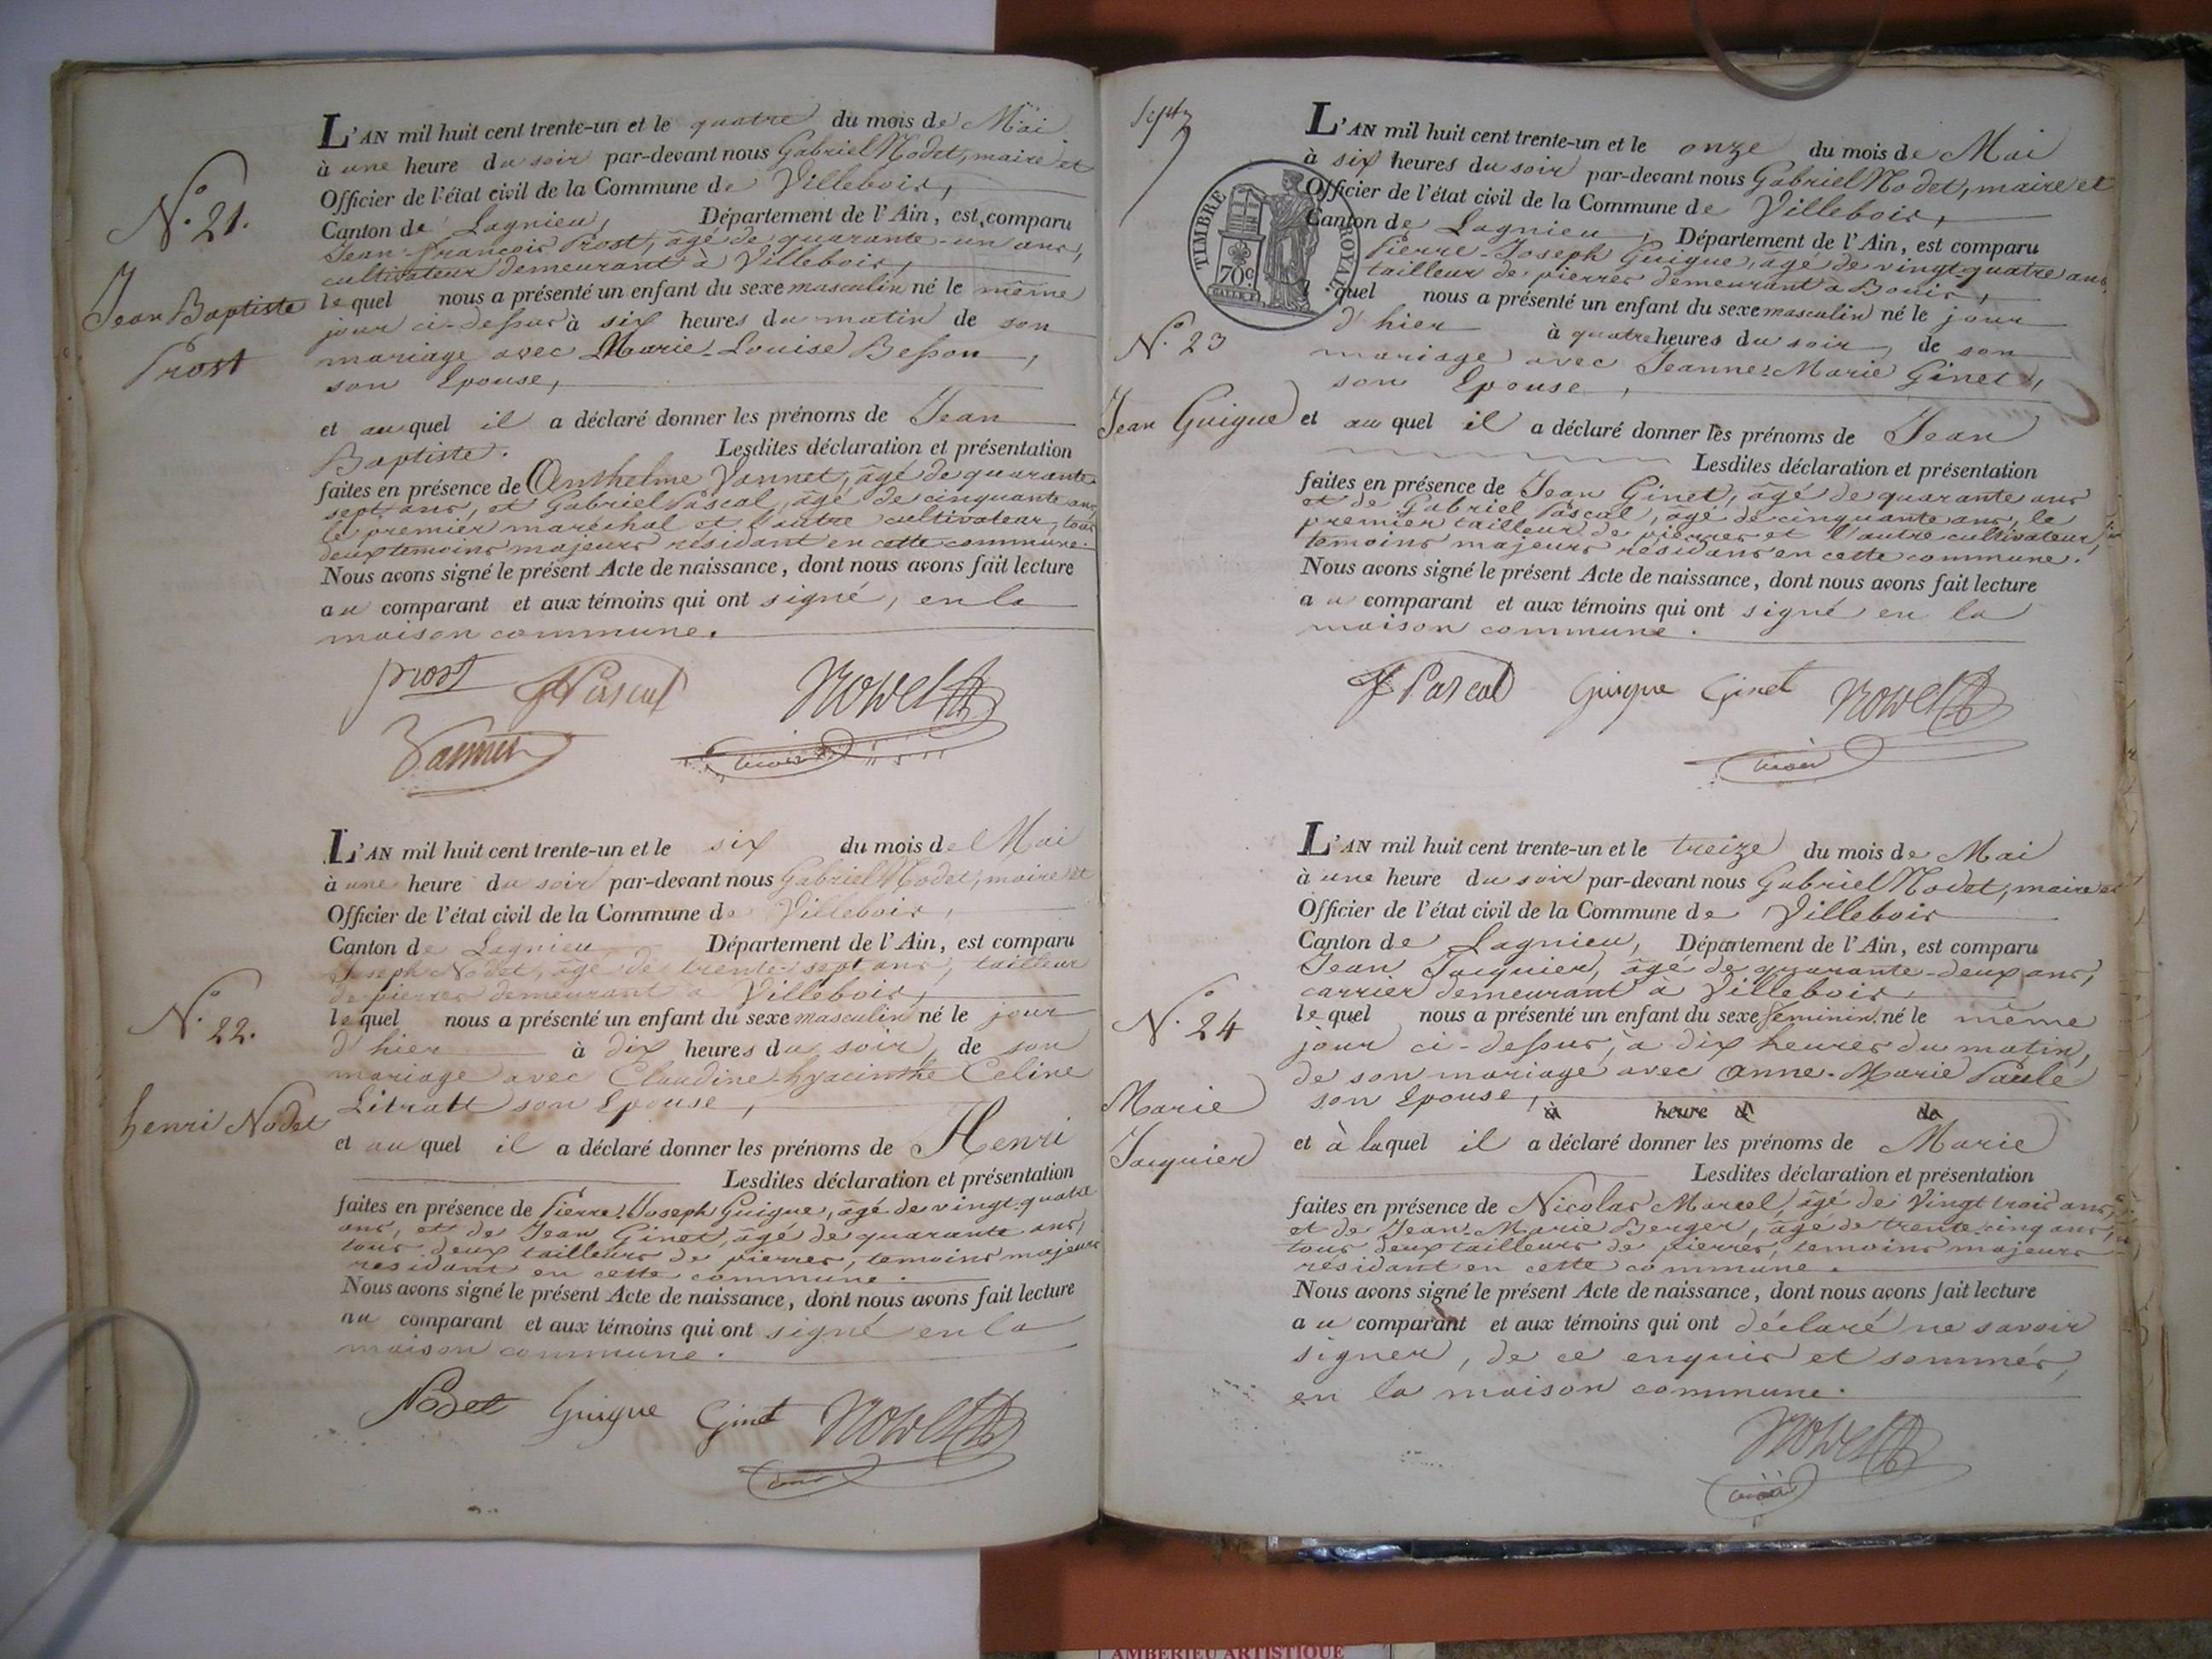 N.o 21.
Jean Baptiste
Prost
L'AN mil huit cent trente-un et le quatre du mois de Mai
à une heure du soir par-devant nous Gabriel Nodet, maire et
Officier de l'état civil de la Commune de Villebois,
Canton de Lagnieu, Département de l'Ain, est comparu
Jean-François Prost, âgé de quarante-un ans,
cultivateur demeurant à Villebois,
lequel nous a présenté un enfant du sexe masculin né le même
jour ci-dessus à six heures du matin de son
mariage avec Marie-Louise Besson,
son Epouse,
et auquel il a déclaré donner les prénoms de Jean
Baptiste. Lesdites déclaration et présentation
faites en présence de Anthelme Vannet, âgé de quarante
sept ans, et Gabriel Pascal, âgé de cinquante ans,
le premier maréchal et l'autre cultivateur, tous
deux temoins majeurs résidant en cette commune.
Nous avons signé le présent Acte de naissance, dont nous avons fait lecture
au comparant et aux témoins qui ont signé, en la
maison commune.
prost Pascal Nodet
Vannet
maire
N.o 22.
henri Nodet
L'AN mil huit cent trente-un et le six du mois de Mai
à une heure du soir par-devant nous Gabriel Nodet, maire et
Officier de l'état civil de la Commune de Villebois,
Canton de Lagnieu Département de l'Ain, est comparu
Joseph Nodet, âgé de trente-sept ans, tailleur
de pierres demeurant à Villebois,
lequel nous a présenté un enfant du sexe masculin né le jour
d'hier à dix heures du soir, de son
mariage avec Claudine-hyacinthe Celine
Litratt son Epouse,
et auquel il a déclaré donner les prénoms de Henri
Lesdites déclaration et présentation
faites en présence de Pierre-Joseph Guigue, âgé de vingt-quatre
ans, et de Jean Ginet, âgé de quarante ans,
tous deux tailleurs de pierres, temoins majeurs
résidant en cette commune.
Nous avons signé le présent Acte de naissance, dont nous avons fait lecture
au comparant et aux témoins qui ont signé en la
maison commune.
Nodet Guigue Ginet Nodet
TIMBRE ROYAL
70c
N.o 23
Jean Guigue
L'AN mil huit cent trente-un et le onze du mois de Mai
à six heures du soir par-devant nous Gabriel Nodet, maire et
Officier de l'état civil de la Commune de Villebois,
Canton de Lagnieu, Département de l'Ain, est comparu
Pierre-Joseph Guigue, âgé de vingt-quatre ans,
tailleur de pierres demeurant à Bouis,
lequel nous a présenté un enfant du sexe masculin né le jour
d'hier à quatre heures du soir, de son
mariage avec Jeanne-Marie Ginet,
son Epouse,
et auquel il a déclaré donner les prénoms de Jean
Lesdites déclaration et présentation
faites en présence de Jean Ginet, âgé de quarante ans
et de Gabriel Pascal, âgé de cinquante ans, le
premier tailleur de pierres et l'autre cultivateur,
temoins majeurs résidans en cette commune.
Nous avons signé le présent Acte de naissance, dont nous avons fait lecture
au comparant et aux témoins qui ont signé en la
maison commune.
Pascal Guigue Ginet Nodet
maire
N.o 24
Marie
Jacquier
L'AN mil huit cent trente-un et le treize du mois de Mai
à une heure du soir par-devant nous Gabriel Nodet, maire et
Officier de l'état civil de la Commune de Villebois
Canton de Lagnieu, Département de l'Ain, est comparu
Jean Jacquier, âgé de quarante-deux ans,
carrier demeurant à Villebois
lequel nous a présenté un enfant du sexe feminin né le même
jour ci-dessus, à dix heures du matin,
de son mariage avec Anne-Marie Paule
son Epouse, à heure d de
et à laquel il a déclaré donner les prénoms de Marie
Lesdites déclaration et présentation
faites en présence de Nicolas Marcel, âgé de Vingt trois ans,
et de Jean-Marie Berger, âgé de trente-cinq ans,
tous deux tailleurs de pierres, temoins majeurs
résidant en cette commune.
Nous avons signé le présent Acte de naissance, dont nous avons fait lecture
au comparant et aux témoins qui ont déclaré ne savoir
signer, de ce enquis et sommés,
en la maison commune.
Nodet
maire
AMBERIEU ARTISTIQUE